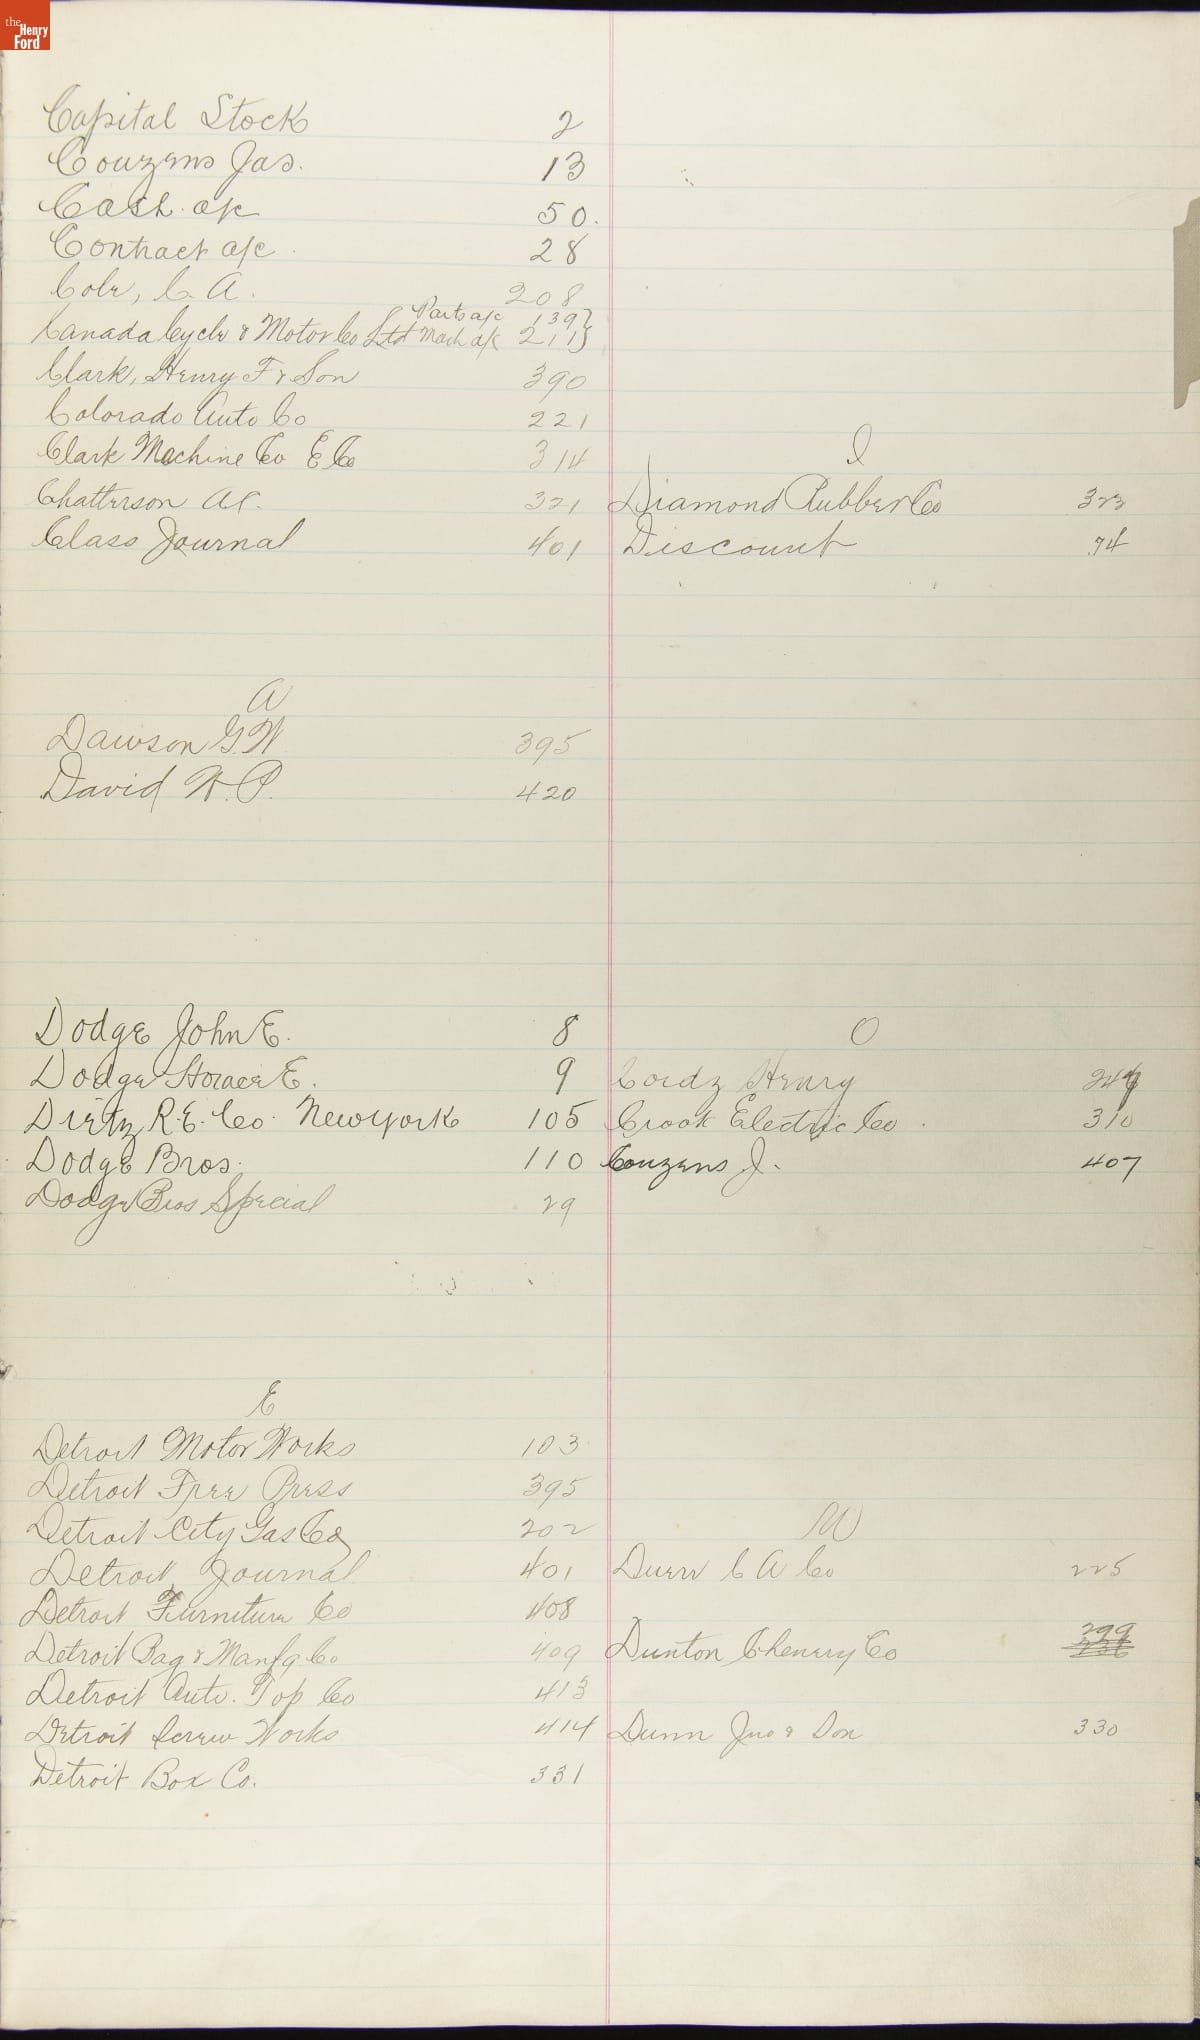 the Henry Ford
Capital Stock 2
Couzens Jas. 13
Cash a/c 50.
Contract a/c 28
Cole, C. A. 208
Parts a/c 139
Canada Cycle & Motor Co Ltd Mach a/c 211
Clark, Henry F & Son 390
Colorado Auto Co 221
Clark Machine Co E Co 314
Chatterson A C. 321
Class Journal 401
A
Dawson G. W 395
David W. P. 420
Dodge John E. 8
Dodge Horace E. 9
Dietz R. E. Co. New York 105
Dodge Bros. 110
Dodge Bros Special 29
E
Detroit Motor Works 103
Detroit Free Press 395
Detroit City Gas Co 202
Detroit Journal 401
Detroit Furniture Co 408
Detroit Bag & Manfg Co 409
Detroit Auto. Top Co 413
Detroit Screw Works 414
Detroit Box Co. 331
I
Diamond Rubber Co 323
Discount 74
O
Cordz Henry
Crook Electric Co. 310
Couzens J. 407
W
Duerr C A Co 225
Dunton Chenery Co 299
Dunn Jno & Son 330